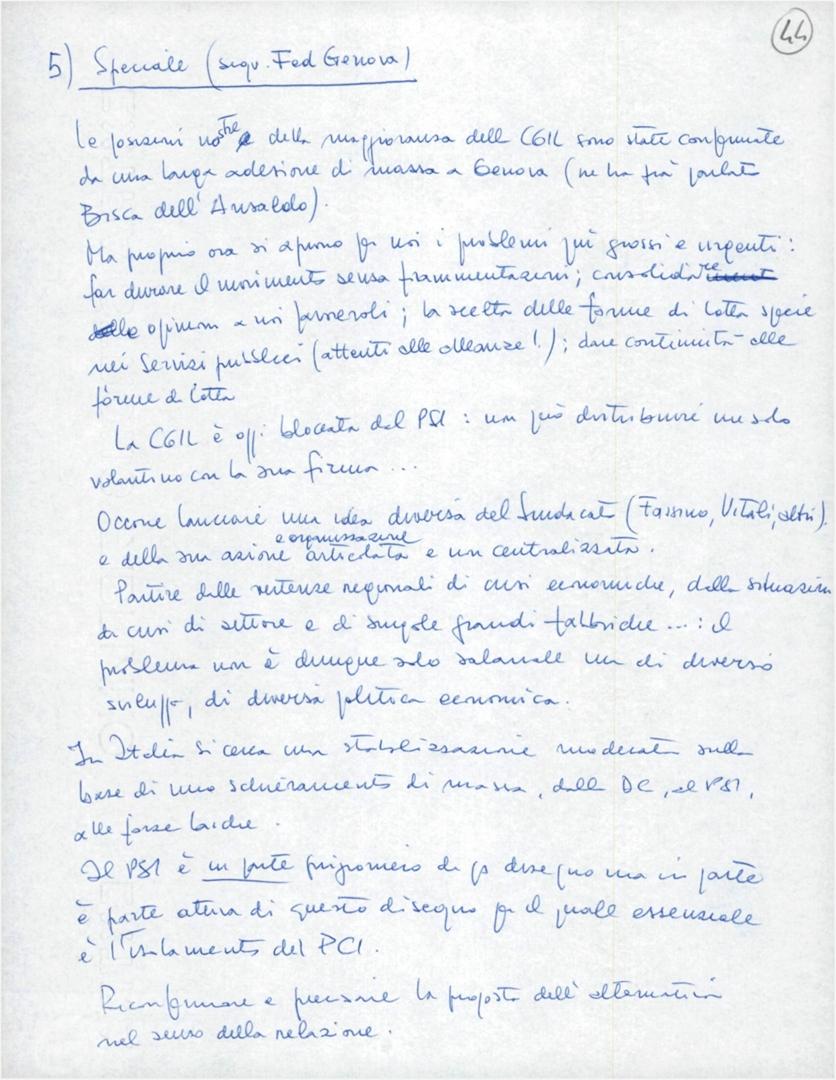 44
5) Speciale (segr. Fed Genova)
Le posizioni nostre della maggioranza della CGIL sono state confermate
da una larga adesione di massa a Genova (ne ha già parlato
Bisca dell'Ansaldo).
Ma proprio ora si aprono per noi i problemi più grossi e urgenti:
far durare il movimento senza frammentazioni; consolidare
opinioni a noi favorevoli; la scelta delle forme di lotta specie
nei servizi pubblici (attenti alle alleanze!); dare continuità alle
forme di lotta
La CGIL è oggi bloccata dal PSI: non può distribuire un solo
volantino con la sua firma...
Occorre lanciare una idea diversa del Sindacato (Fassino, Vitali, altri).
e organizzazione
e della sua azione articolata e non centralizzata.
Partire dalle vertenze regionali di crisi economiche, dalla situazione
di crisi di settore e di singole grandi fabbriche...: il
problema non è dunque solo salariale ma di diverso
sviluppo, di diversa politica economica.
In Italia si cerca una stabilizzazione moderata sulla
base di uno schieramento di massa, dalla DC, al PSI,
alle forze laiche.
Il PSI è in parte prigioniero di qo disegno ma in parte
è parte attiva di questo disegno per il quale essenziale
è l'isolamento del PCI.
Riconfermare e precisare la proposta dell'alternativa
nel senso della relazione.